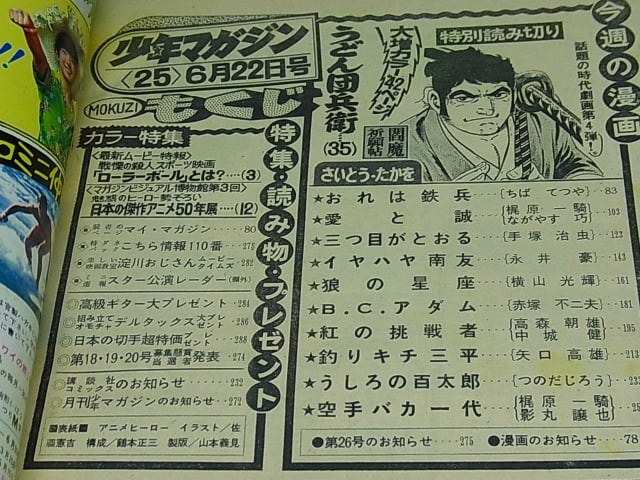 少年マガジン
〈25〉6月22日号
MOKUZI もくじ
カラー特集
〈最新ムービー特報〉
戦慄の殺人スポーツ映画
「ローラーボール」とは?…(3)
〈マガジンビジュアル博物館第3回〉
魅惑のヒーロー勢ぞろい
日本の傑作アニメ50年展…(12)
特集・読み物・プレゼント
読者のページ マイ・マガジン……80
特ダネ こちら情報110番……278
楽しい映画教室 淀川おじさんムービータイムズ 282
週報 スター公演レーダー(欄外)
◎高級ギター大プレゼント…284
◎組み立てオモチャ デルタックス大プレゼント…286
◎日本の切手超特価プレゼント…288
◎第18・19・20号募集懸賞当選者発表…274
◎講談社コミックスのお知らせ……232
◎月刊少年マガジンのお知らせ……272
■表紙■ アニメヒーロー/イラスト/佐
藤憲吉 構成/鶴本正三 製版/山本義見
今週の漫画
話題の時代劇画第4弾!
特別読み切り
大増力ラー42ページ
うどん団兵衛
(35)
閻魔祈願帖
さいとう・たかを
★おれは鉄兵……{ちばてつや}…83
★愛と誠……{梶原一騎 ながやす巧}…103
★三つ目がとおる……{手塚治虫}…123
★イヤハヤ南友……{永井豪}…143
★狼の星座……{横山光輝}…161
★B.C.アダム……{赤塚不二夫}…181
★紅の挑戦者……{高森朝雄 中城健}…195
★釣りキチ三平……{矢口高雄}…213
★うしろの百太郎……{つのだじろう}…23
★空手バカ一代……{梶原一騎 影丸譲也}…25
●第26号のお知らせ…275
●漫画のお知らせ…78